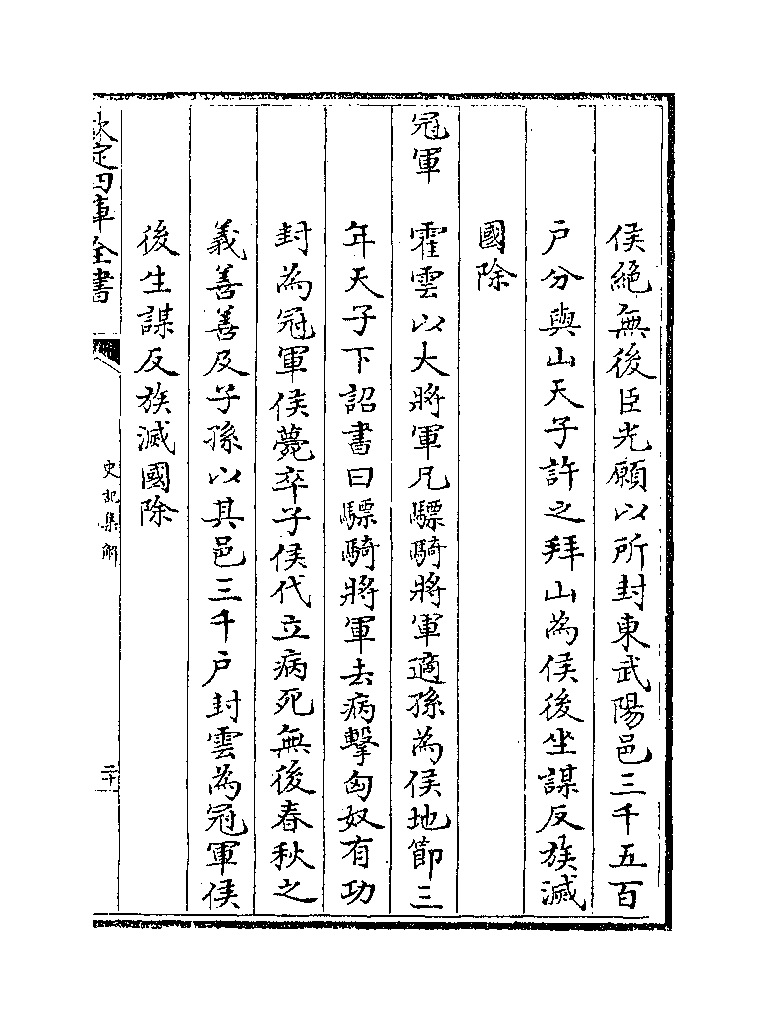 侯絕無後臣光願以所封東武陽邑三千五百
戶分與山天子許之拜山為侯後坐謀反族滅
國除
冠軍　霍雲以大將軍兄驃騎將軍適孫為侯地節三
年天子下詔書曰驃騎將軍去病擊匈奴有功
封為冠軍侯薨卒子侯代立病死無後春秋之
義善善及子孫以其邑三千戶封雲為冠軍侯
後坐謀反族滅國除
欽定四庫全書
史記集解
二十一